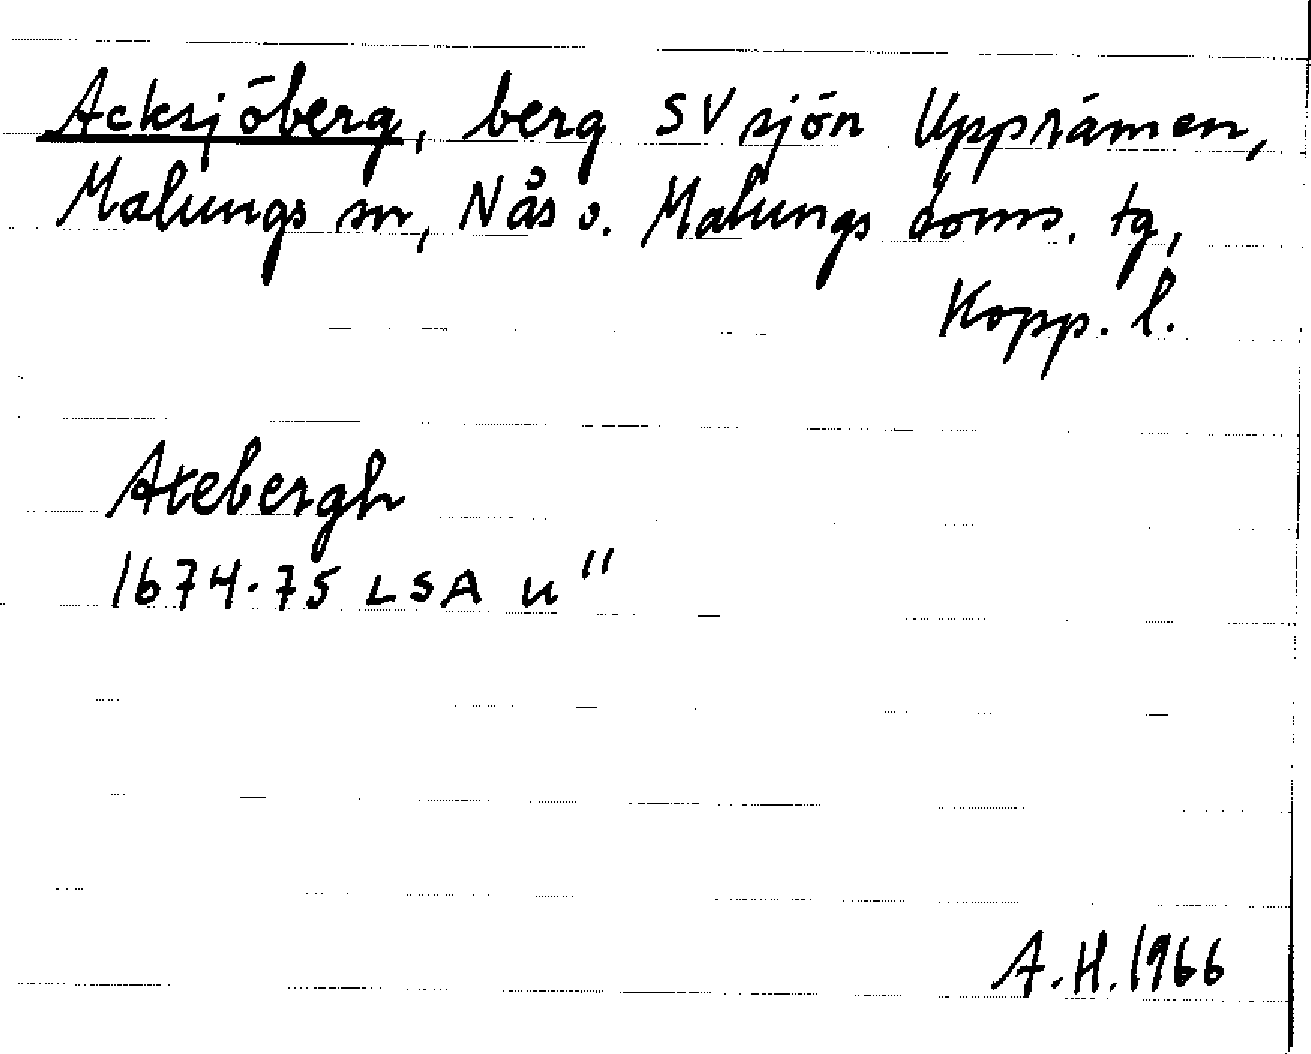 Acksjöberg, berg SV sjön Upprämen,
Malungs sn, Nås o. Malungs doms. tg,
Kopp. l.
Atebergh
1674-75 LSA u"
A.H. 1966